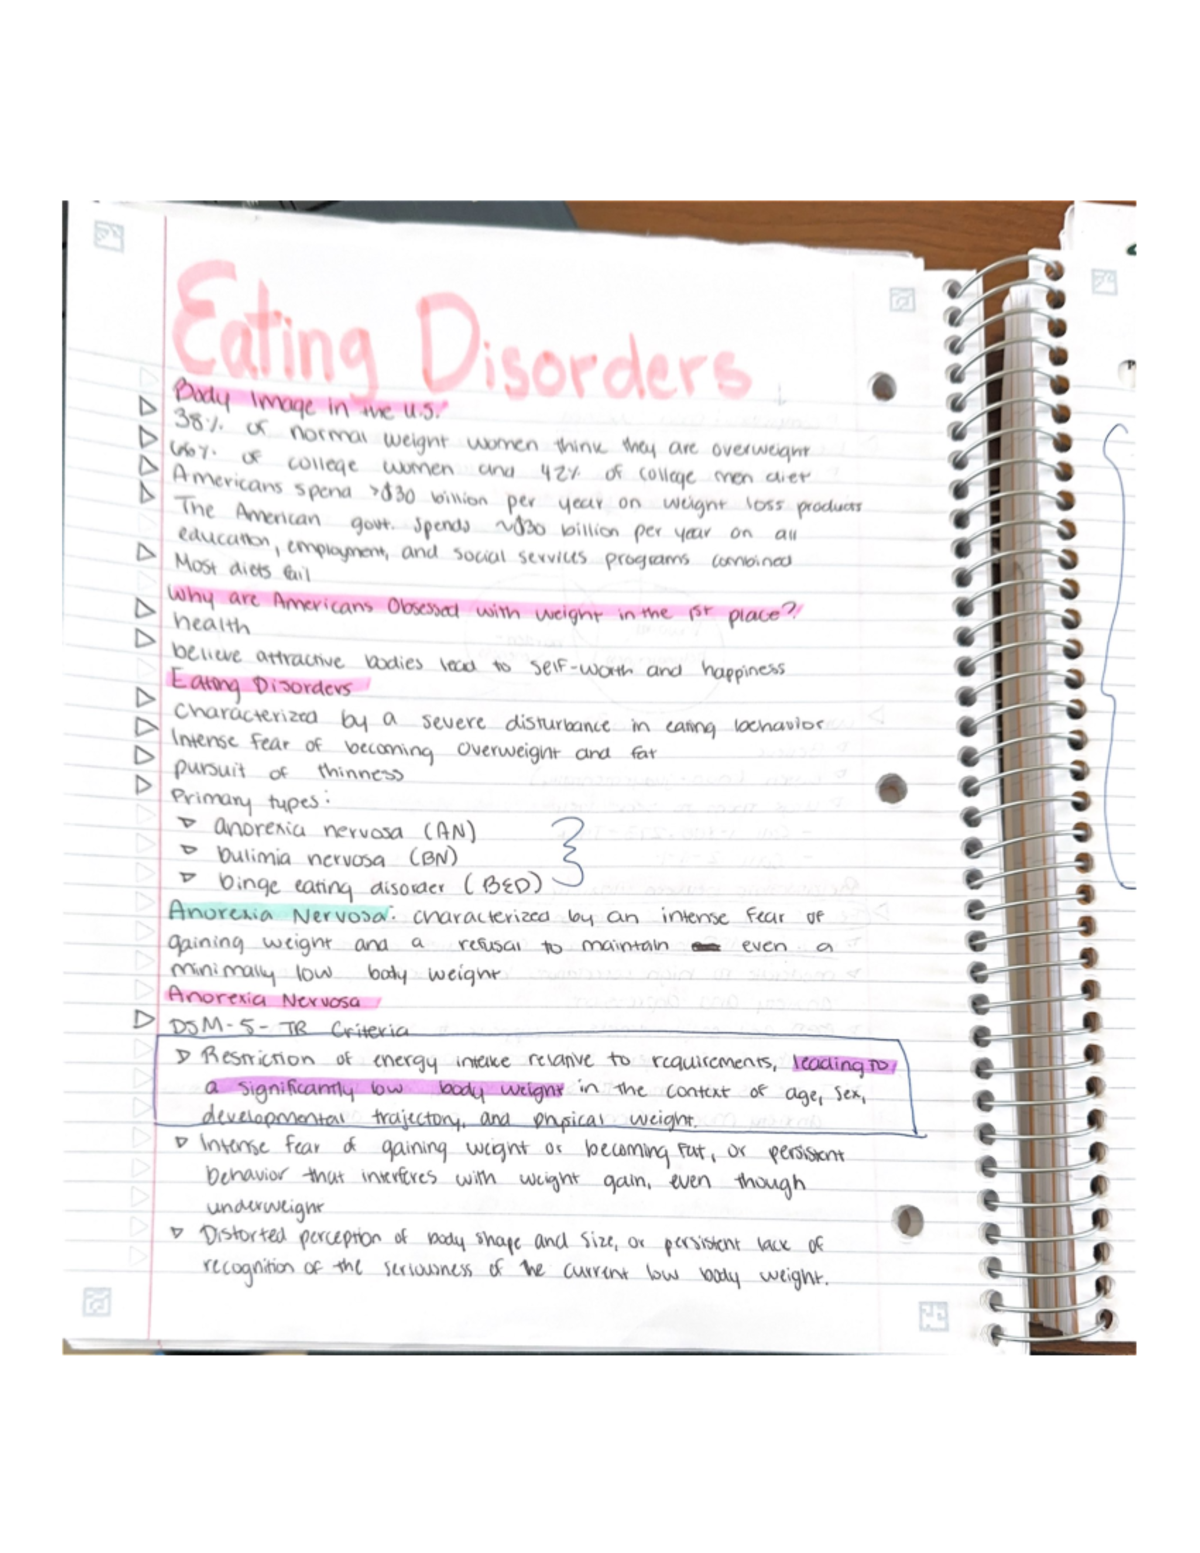 Eating Disorders
Body Image in the U.S.
38% of normal weight women think they are overweight
66% of college women and 42% of college men diet
Americans spend >$30 billion per year on weight loss products
The American govt. spends ~$30 billion per year on all
education, employment, and social services programs combined
Most diets fail
Why are Americans Obsessed with weight in the 1st place?
health
believe attractive bodies lead to self-worth and happiness
Eating Disorders
Characterized by a severe disturbance in eating behavior
Intense fear of becoming overweight and fat
pursuit of thinness
Primary types:
anorexia nervosa (AN)
bulimia nervosa (BN)
binge eating disorder (BED)
Anorexia Nervosa: characterized by an intense fear of
gaining weight and a refusal to maintain even a
minimally low body weight
Anorexia Nervosa
DSM-5-TR Criteria
Restriction of energy intake relative to requirements, leading to
a significantly low body weight in the context of age, sex,
developmental trajectory, and physical weight.
Intense fear of gaining weight or becoming fat, or persistent
behavior that interferes with weight gain, even though
underweight
Distorted perception of body shape and size, or persistent lack of
recognition of the seriousness of the current low body weight.